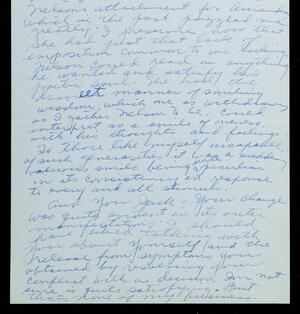 Nelson's attachment for Amanda
which in the past puzzled me
greatly; I presume now that
she had just that lack of
imposition common to one lacking
Nelson could read on anything
he wanted and satisfy his
poetic soul. She had the
manner of smiling
wisdom, which one as withdrawing
as I gather Nelson to be, could
interpret as a smile of
with his thoughts and feelings.
To those like myself incapable
of such generosities it was a maddening
smile being
in its consistency in response
to every and all stimuli.
And You Jack - Your change
was quite evident in its outer
manifestations. I should
have liked talking with
you about yourself and the
release from symptoms you
obtained by resolving your
conflict with a decision. I'm not
sure is quite satisfying. But
that's none of my business.